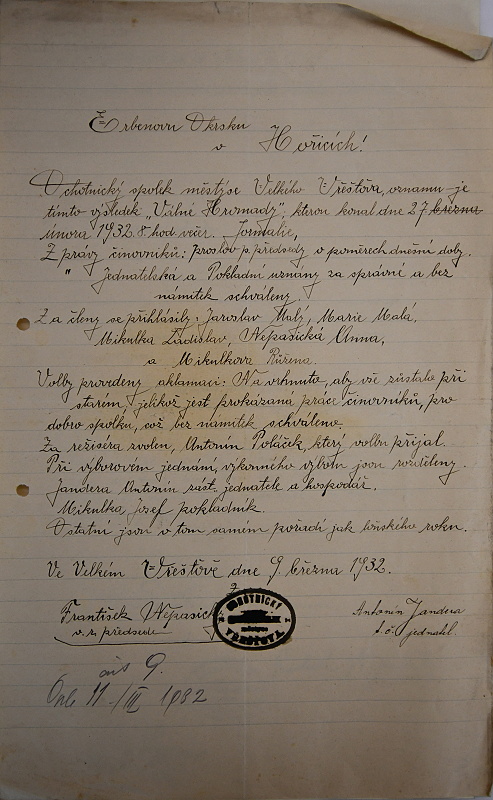 Erbenovu Okrsku
v Hořicích!
Ochotnický spolek městýse Velkého Vřešťova, oznamu-je
tímto výsledek „Valné Hromady", kterou konal dne 27 března
února 1932. 8. hod. več. Formalie,
Zprávy činovníků: proslov p. předsedy o poměrech dnešní doby.
" Jednatelská a Pokladní uznány za správné a bez
námitek schváleny.
Za členy se přihlásily: Jaroslav Malý, Marie Malá,
Mikulka Ladislav, Nepasická Anna,
a Mikulkova Růžena.
Volby provedeny aklamací: Navrhnuto, aby vše zůstalo při
starém, jelikož jest prokázaná práce činovníků, pro
dobro spolku, což bez námitek schváleno.
Za režiséra zvolen, Antonín Poláček, který volbu přijal.
Při výborovém jednání, výkonného výboru jsou rozděleny.
Jandera Antonín zást. jednatele a hospodář.
Mikulka Josef pokladník.
Ostatní jsou v tom samém pořadí jak loňského roku.
Ve Velkém Vřešťově dne 9. března 1932.
František Nepasický
v. z. předseda
VŘEŠŤOVA
Antonín Jandera
t. č. jednatel.
9.
11/III 1932